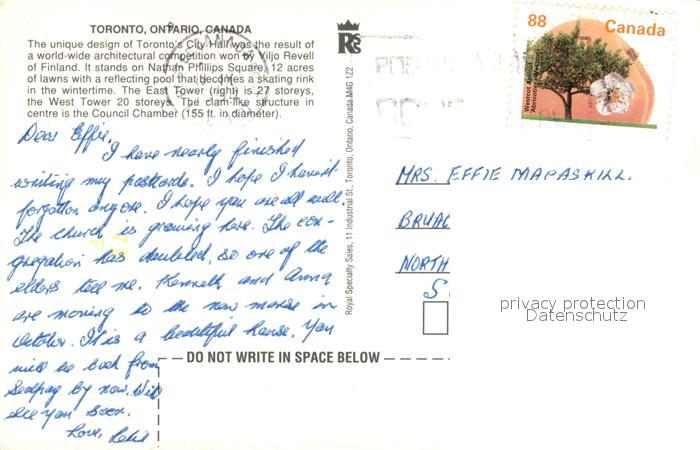 TORONTO, ONTARIO, CANADA
The unique design of Toronto's City Hall was the result of
a world-wide architectural competition won by Viljo Revell
of Finland. It stands on Nathan Phillips Square, 12 acres
of lawns with a reflecting pool that becomes a skating rink
in the wintertime. The East Tower (right) is 27 storeys,
the West Tower 20 storeys. The clam-like structure in
centre is the Council Chamber (155 ft. in diameter).
Dear Effie,
I have nearly finished
writing my postcards. I hope I haven't
forgotten anyone. I hope you are all well.
The church is growing here. The con-
gregation has doubled, so one of the
elders tell me. Kenneth and Anna
are moving to the new manse in
October. It is a beautiful house. You
will be back from
by now. Will
see you soon.
Love,
Royal Specialty Sales, 11 Industrial St., Toronto, Ontario, Canada M4G 1Z2
88 Canada
MRS. EFFIE MACASKILL.
BRUAC
NORTH
S
privacy protection
Datenschutz
DO NOT WRITE IN SPACE BELOW